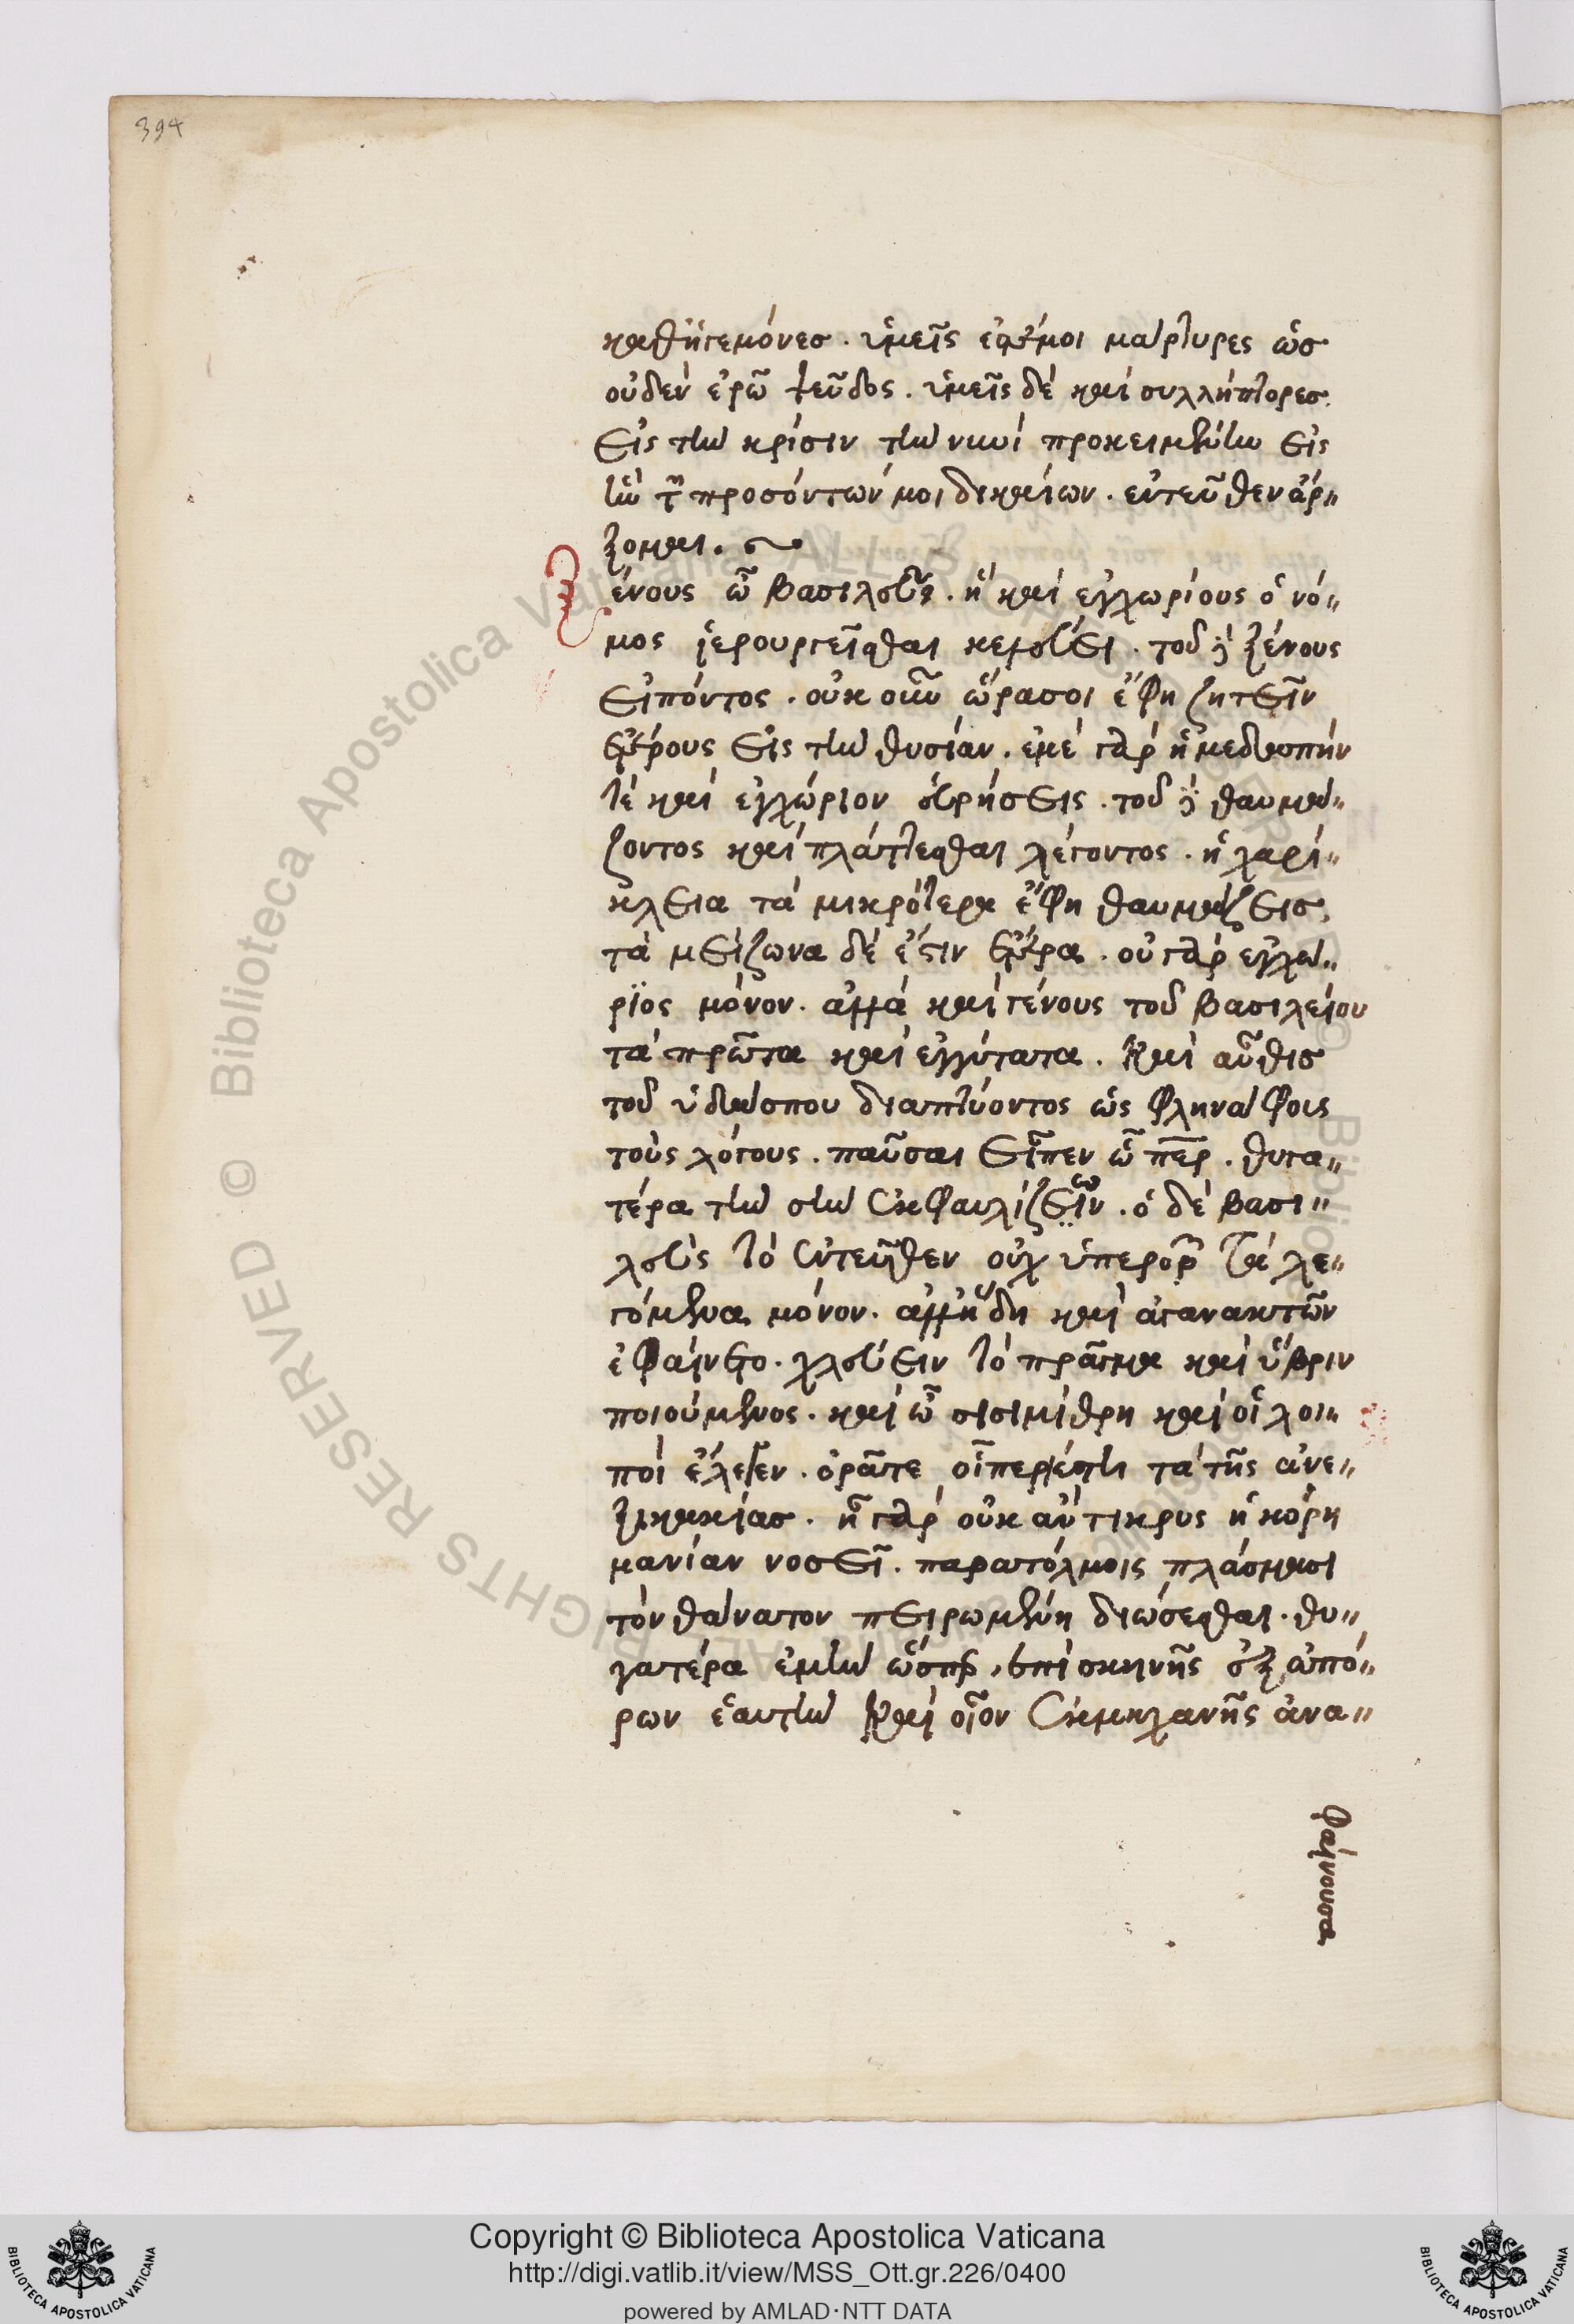 394
καθηγεμόνες. ὑμεῖς ἐστέ μοι μάρτυρες ὡς
οὐδὲν ἐρῶ ψεῦδος. ὑμεῖς δὲ καὶ συλλήπτορες
εἰς τὴν κρίσιν τὴν νυνὶ προκειμένην εἰς
ἣν τῶν προσόντων μοι δικαίων. ἐντεῦθεν ἄρ〃
ξομαι.
Ξένους ὦ βασιλεῦ. ἢ καὶ ἐγχωρίους ὁ νό〃
μος ἱερουργεῖσθαι κελεύει. τοῦ δὲ ξένους
εἰπόντος. οὐκοῦν ὥρα σοι ἔφη ζητεῖν
ἑτέρους εἰς τὴν θυσίαν. ἐμὲ γὰρ ἡμεδαπήν
τε καὶ ἐγχώριον εὑρήσεις. τοῦ δὲ θαυμά〃
ζοντος καὶ πλάττεσθαι λέγοντος. ἡ χαρί〃
κλεια τὰ μικρότερα ἔφη θαυμάζεις,
τὰ μείζωνα δέ ἐστιν ἕτερα. οὐ γὰρ ἐγχώ〃
ριος μόνον. ἀλλὰ καὶ γένους τοῦ βασιλείου
τὰ πρῶτα καὶ ἐγγύτατα. καὶ αὖθις
τοῦ ὑδάσπου διαπτύοντος ὡς φληνάφοις
τοὺς λόγους. παῦσαι εἶπεν ὦ περ. θυγα〃
τέρα τὴν σὴν ἐκφαυλίζειν. ὁ δὲ βασι〃
λεὺς τὸ ἐντεῦθεν οὐχ ὑπερορῶν τὰ λε〃
γόμενα μόνον. ἀλλ' ἤδη καὶ ἀγανακτῶν
ἐφαίνετο. χλεύειν τὸ πρᾶγμα καὶ ὕβριν
ποιούμενος. καὶ ὦ σισιμίθρη καὶ οἱ λοι〃
ποὶ ἔλεγεν. ὁρᾶτε οἷπερ ἐστὶ τὰ τῆς ἀνε〃
ξικακίας. ἦ γὰρ οὐκ αὐτικρυς ἡ κόρη
μανίαν νοσεῖ. παρατόλμοις πλάσμασι
τὸν θάνατον πειρωμένη διώσεσθαι. θυ〃
γατέρα ἐμὴν ὥσπερ ἐπὶ σκηνῆς ἐξ ἀπό〃
ρων ἑαυτὴν καὶ οἷον ἐκ μηχανῆς ἀνα〃
φαίνουσα
© Biblioteca Apostolica Vaticana ALL RIGHTS RESERVED
Copyright © Biblioteca Apostolica Vaticana
http://digi.vatlib.it/view/MSS_Ott.gr.226/0400
powered by AMLAD·NTT DATA
BIBLIOTECA APOSTOLICA VATICANA
BIBLIOTECA APOSTOLICA VATICANA